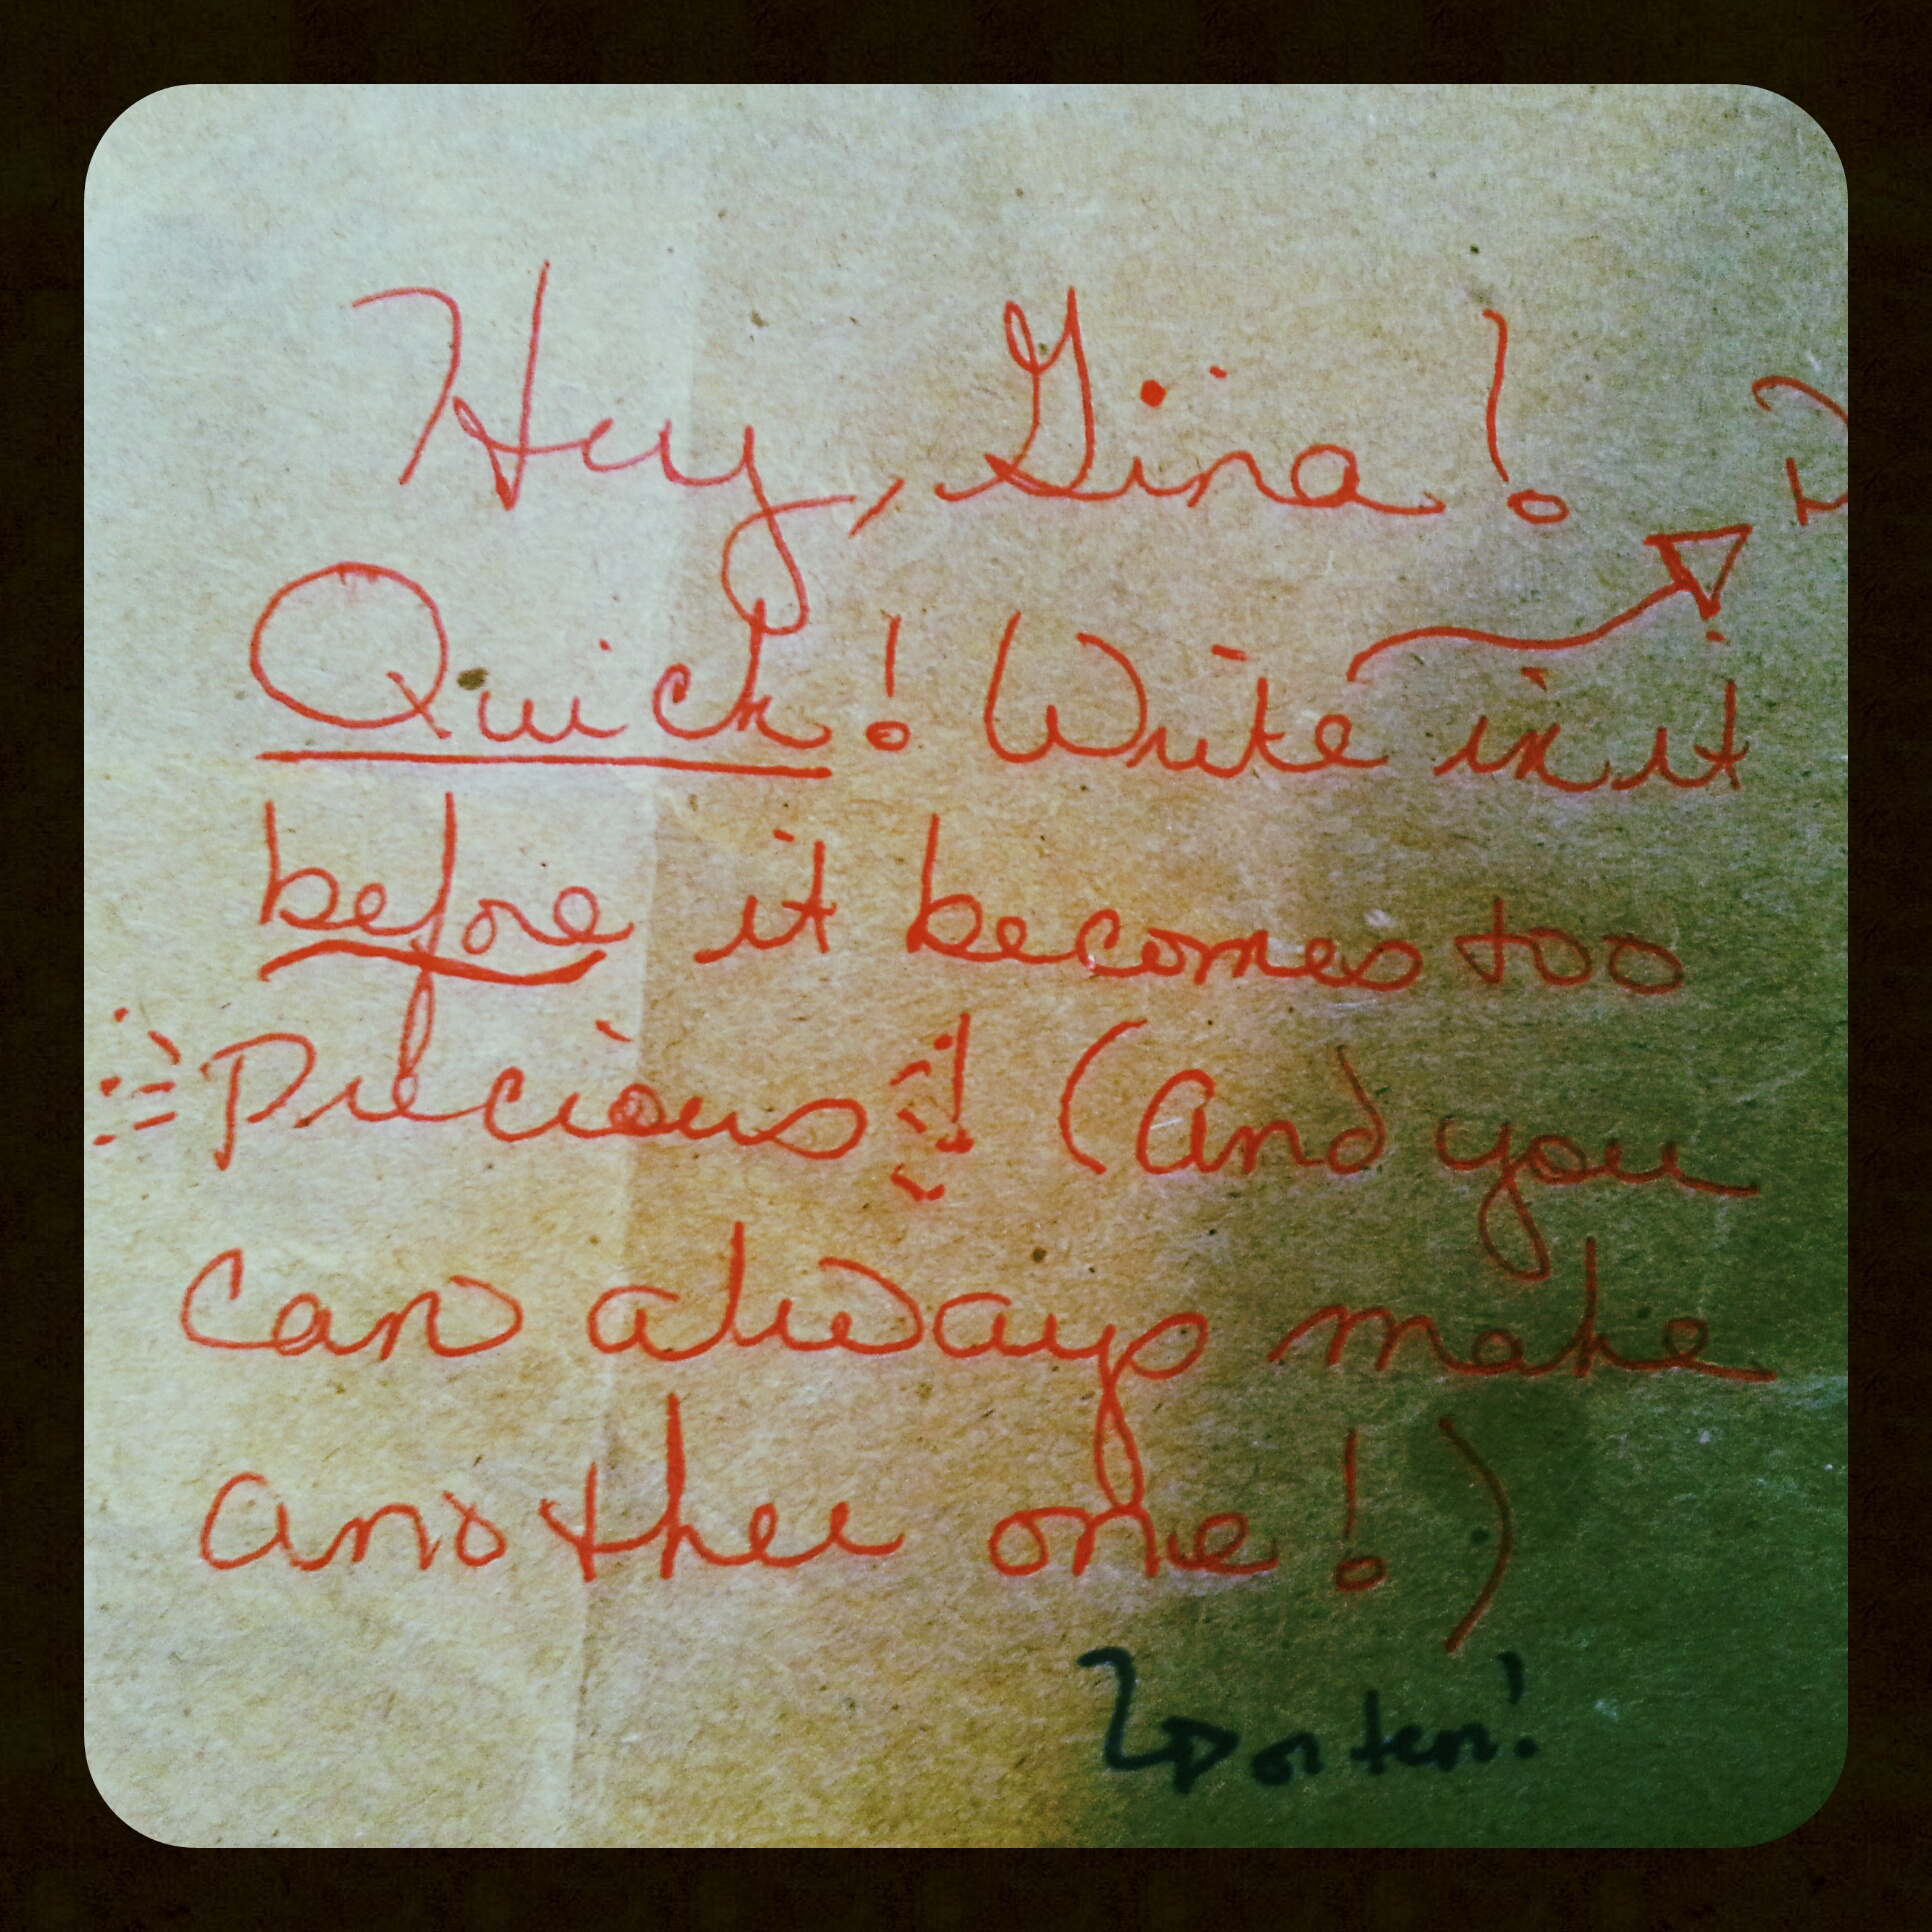 Hey, Gina!
Quick! Write in it
before it becomes too
Precious! (And you
can always make
another one!)
or ten!